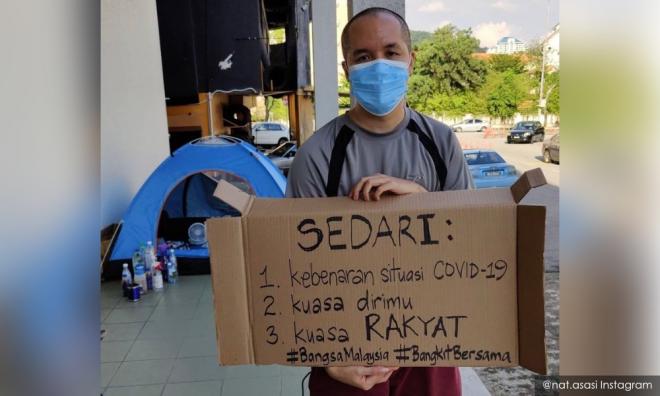 SEDARI:
1. kebenaran situasi COVID-19
2. kuasa dirimu
3. kuasa RAKYAT
#BangsaMalaysia #BangkitBersama
@nat.asasi Instagram